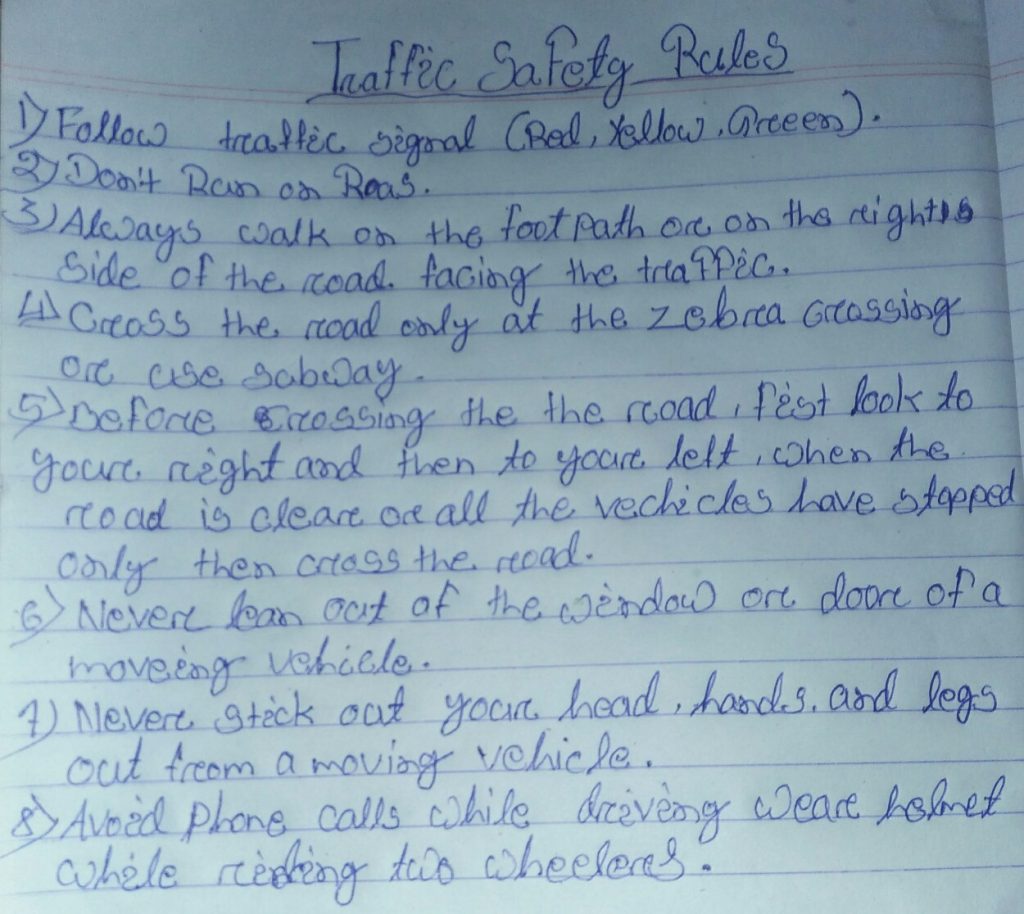 Traffic Safety Rules
1) Follow traffic signal (Red, Yellow, Green).
2) Don't Run on Roas.
3) Always walk on the footpath or on the right
side of the road. facing the traffic.
4) Cross the road only at the zebra crossing
or use subway.
5) Before crossing the the road, fist look to
your right and then to your left, when the
road is clear or all the vechicles have stopped
only then cross the road.
6) Never lean out of the window or door of a
moveing vehicle.
7) Never stick out your head, hands, and legs
out from a moving vehicle.
8) Avoid phone calls while driving wear helmet
while riding two wheelers.